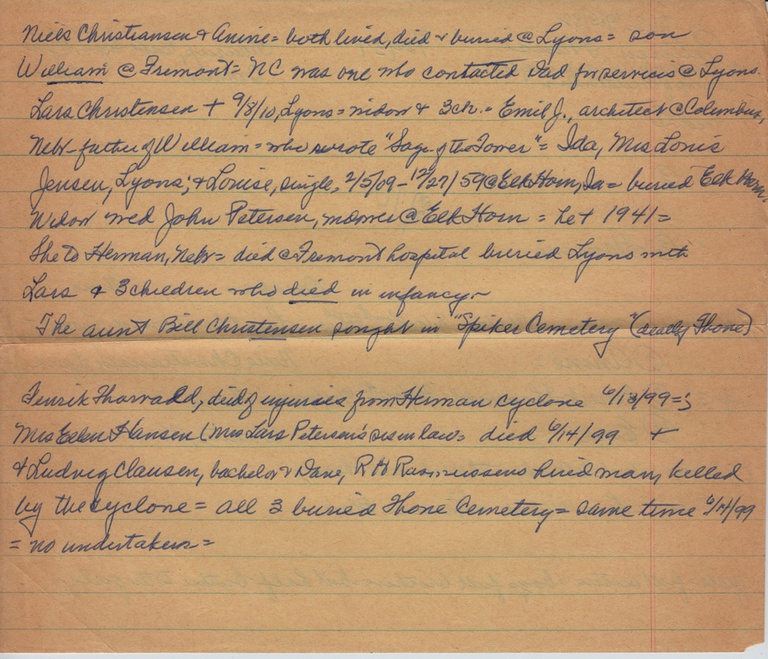 Niels Christiansen & Anine = both lived, died & buried @ Lyons = son
William @ Fremont = NC was one who contacted Dad for services @ Lyons.
Lars Christensen + 9/8/10, Lyons = widow & 3 ch. = Emil J., architect @ Columbus,
Nebr - father of William = who wrote "Saga of the Tower" = Ida, Mrs Louis
Jensen, Lyons; & Louise, single, 2/5/09 - 12/27/59 @ Elk Horn, Ia = buried Elk Horn.
Widow wed John Petersen, @ Elk Horn = he + 1941 =
She to Herman, Nebr = died @ Fremont hospital buried Lyons with
Lars & 3 children who died in infancy -
The aunt Bill Christensen sought in "Spiker Cemetery" (Thone)
Henrik Thorvald, died of injuries from Herman cyclone 6/13/99 =
Mrs Ellen Hansen (Mrs Lars Petersen's sis in law = died 6/14/99 +
& Ludvig Clausen, bachelor & Dane, R H Rasmussens hired man, killed
by the cyclone = all 3 buried Thone Cemetery = same time 6/14/99
= no undertakers =